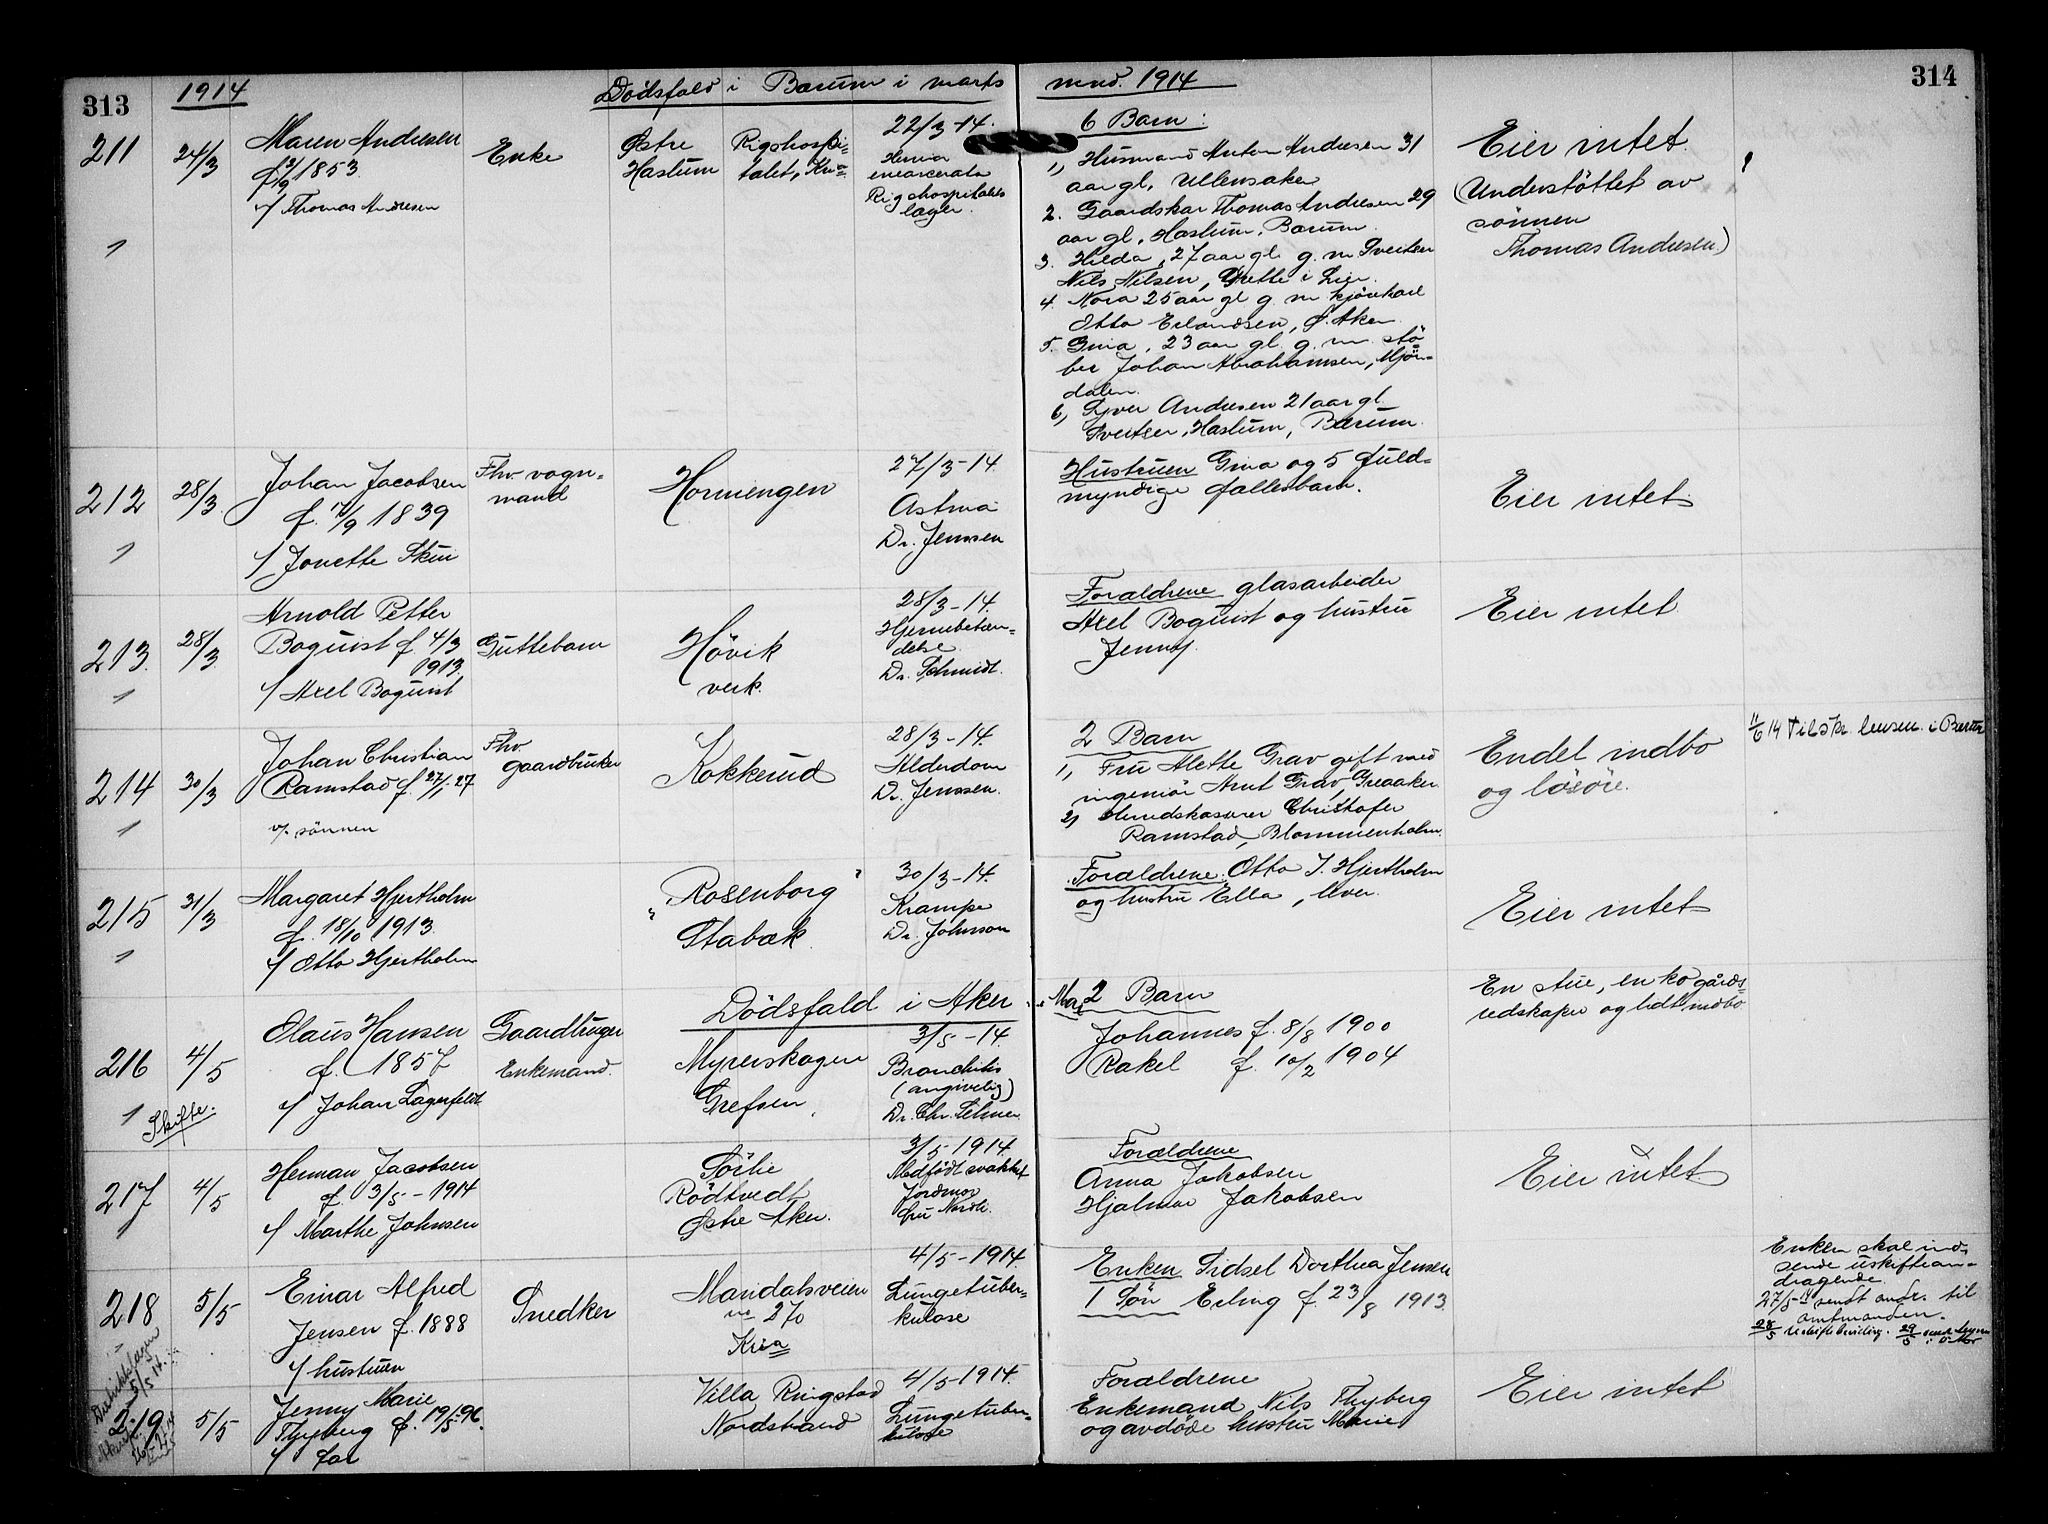 313
1914
Dödsfald i Bærum i marts
mnd. 1914
314
211
24/3
Maren Andresen
f. 1853
v/ Thomas Andresen
Enke
Østre
Haslum
Rigshospi-
talet, Kria
22/3-14.
Hernia
incarcerata
Rigshospitalets
læger.
6 Barn:
1, Husmand Anton Andresen 31
aar gl, Ullensaker
2. Gaardskar Thomas Andresen 29
aar gl, Haslum, Bærum.
3. Hilda, 27 aar gl. g. m Sveitser
Nils Nilsen, Grette i Lier.
4. Nora 25 aar gl g. m kjørekarl
Otto Erlandsen, Ø. Aker.
5. Gina, 23 aar gl. g. m. stö-
ber Johan Abrahamsen, Mjön-
dalen.
6, Syver Andresen 21 aar gl.
Sveitser, Haslum, Bærum.
Eier intet.
(Understöttet av
sönnen
Thomas Andresen)
212
28/3
Johan Jacobsen
f. /9 1839
v/ Jonette Skui
Fhv. vogn-
mand
Hornengen
27/3-14
Astma
Dr. Jenssen
Hustruen Gina og 5 fuld-
myndige fællesbarn.
Eier intet
213.
28/3
Arnold Petter
Boquist f. 4/3
1913.
v/ Axel Boquist
Guttebarn
Hövik
verk.
28/3-14.
Hjernebetæn-
delse
Dr. Schmidt.
Forældrene glasarbeider
Axel Boquist og hustru
Jenny.
Eier intet
214
30/3
Johan Christian
Ramstad f. 27/1-27
v/ sönnen
Fhv.
gaardbruker
Kokkerud
28/3-14.
Alderdom
Dr. Jenssen.
2 Barn
1, Fru Alette Grav gift med
ingeniör Arnt Grav, Greaaker
2, Herredskasserer Christofer
Ramstad, Blommenholm.
Endel indbo
og lösöre.
11/6 14 Tilskr. lensm. i Bærum
215
31/3
Margaret Hjertholm
f. 18/10 1913.
v/ Otto Hjertholm
"Rosenborg"
Stabæk.
30/3-14.
Krampe
Dr. Johnson
Forældrene: Otto J. Hjertholm
og hustru Ella, lever.
Eier intet
Dödsfald i Aker i Mai
216
4/5
Skifte.
Olaus Hansen
f. 1857
v/ Johan Lagerfeldt
Gaardbruger
Enkemand.
Myrerskogen
Grefsen
3/5-14.
Bronchitis
(angivelig)
Dr. Chr. Selmer
2 Barn
Johannes f. 8/8 1900
Rakel f. 10/2 1904
En stue, en ko gårds-
redskaper og lidt indbo
217
4/5
Herman Jacobsen
f. 3/5-1914
v/ Marthe Johnsen
Sörlie
Rödtvedt
Østre Aker.
3/5-1914.
Medfödt svakhet
Jordmor
fru Nordli.
Forældrene
Anna Jakobsen
Hjalmar Jakobsen
Eier intet.
218
5/5
Einar Alfred
Jensen f. 1888
v/ hustruen
Snedker
Mandalsveien
no 270
Kria
4/5-1914.
Lungetuber-
kulose
Enken Sidsel Dorthea Jensen
1 Sön Erling f. 23/8 1913.
Enken skal ind-
sende uskiftean-
dragende.
27/5-14 sendt andr. til
amtmanden.
28/5 Uskiftebevilling. 29/5
219
5/5
Jenny Marie
Thyberg f. 19/5-96.
v/ far
Villa Ringstad
Nordstrand
4/5-1914.
Lungetuber-
kulose
Forældrene
Enkemand Nils Thyberg
og avdöde hustru Marie
Eier intet